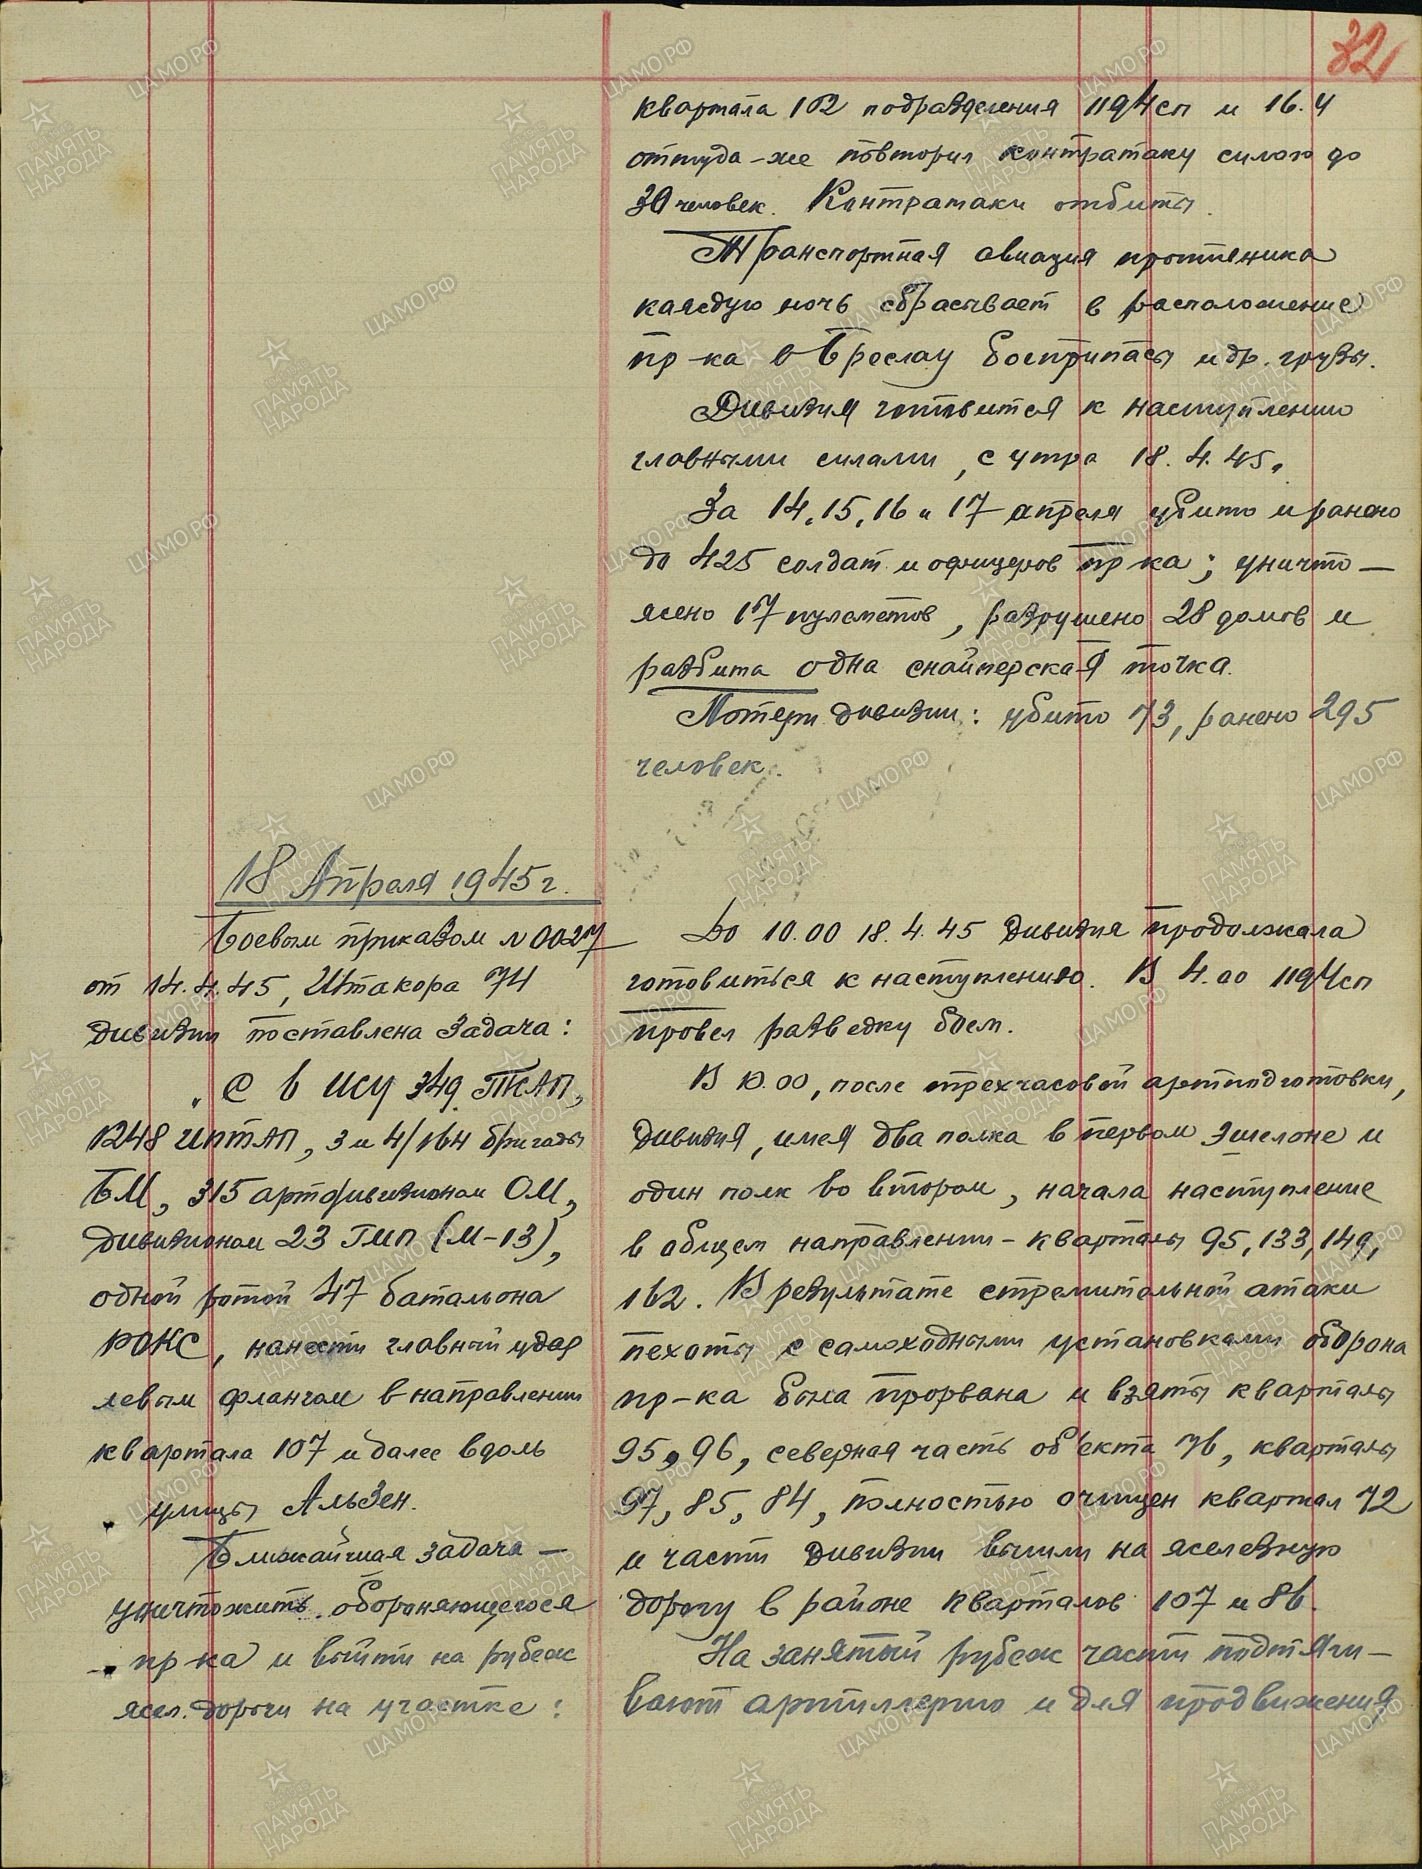 32
квартала 102 подразделения 1194сп и 16.4
оттуда-же повторил контратаку силою до
30 человек. Контратаки отбиты.
Транспортная авиация противника
каждую ночь сбрасывает в расположение
пр-ка в Бреслау боеприпасы и др. грузы.
Дивизия готовится к наступлению
главными силами, с утра 18.4.45.
За 14, 15, 16 и 17 апреля убито и ранено
до 425 солдат и офицеров пр-ка; уничто-
жено 17 пулеметов, разрушено 28 домов и
разбита одна снайперская точка.
Потери дивизии: убито 73, ранено 295
человек.
18 Апреля 1945 г.
Боевым приказом № 0027
от 14.4.45, Штакора 74
дивизии поставлена задача:
„С 6 ИСУ 349 ТКАП,
1248 ИПТАП, 3 и 4/16й бригады
БМ, 315 артдивизионом ОМ,
дивизионом 23 ГМП (М-13),
одной ротой 47 батальона
РОКС, нанести главный удар
левым флангом в направлении
квартала 107 и далее вдоль
улицы Альзен.
Ближайшая задача —
уничтожить обороняющегося
пр-ка и выйти на рубеж
жел. дороги на участке:
До 10.00 18.4.45 дивизия продолжала
готовиться к наступлению. В 4.00 1194сп
провел разведку боем.
В 10.00, после трехчасовой артподготовки,
дивизия, имея два полка в первом эшелоне и
один полк во втором, начала наступление
в общем направлении - кварталы 95, 133, 149,
162. В результате стремительной атаки
пехоты с самоходными установками оборона
пр-ка была прорвана и взяты кварталы
95, 96, северная часть об'екта 76, кварталы
97, 85, 84, полностью очищен квартал 72
и части дивизии вышли на железную
дорогу в районе кварталов 107 и 86.
На занятый рубеж части подтяги-
вают артиллерию и для продвижения